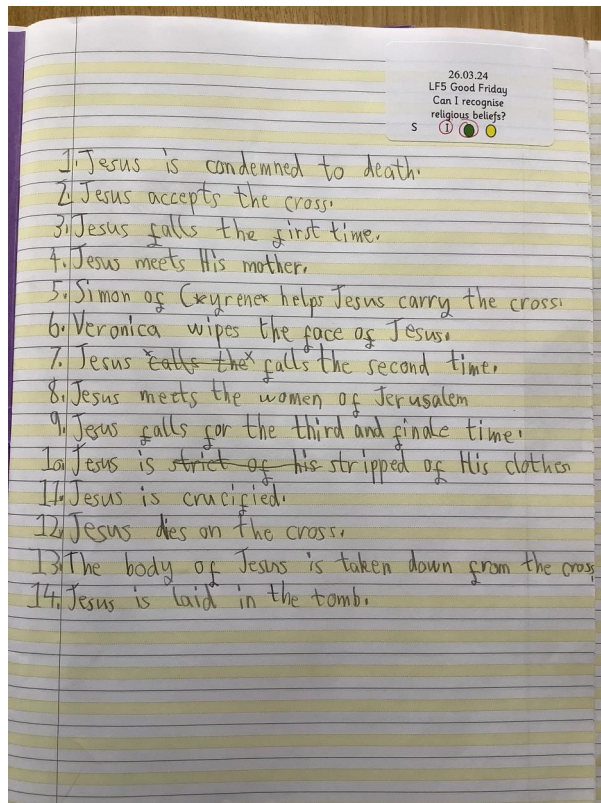 26.03.24
LF5 Good Friday
Can I recognise
religious beliefs?
S I
1. Jesus is condemned to death.
2. Jesus accepts the cross.
3. Jesus falls the first time.
4. Jesus meets His mother.
5. Simon of helps Jesus carry the cross.
6. Veronica wipes the face of Jesus.
7. Jesus falls the second time.
8. Jesus meets the women of Jerusalem
9. Jesus falls for the third and finale time.
10. Jesus is strict of his stripped of His clothes
11. Jesus is crucified.
12. Jesus dies on the cross.
13. The body of Jesus is taken down from the cross
14. Jesus is laid in the tomb.